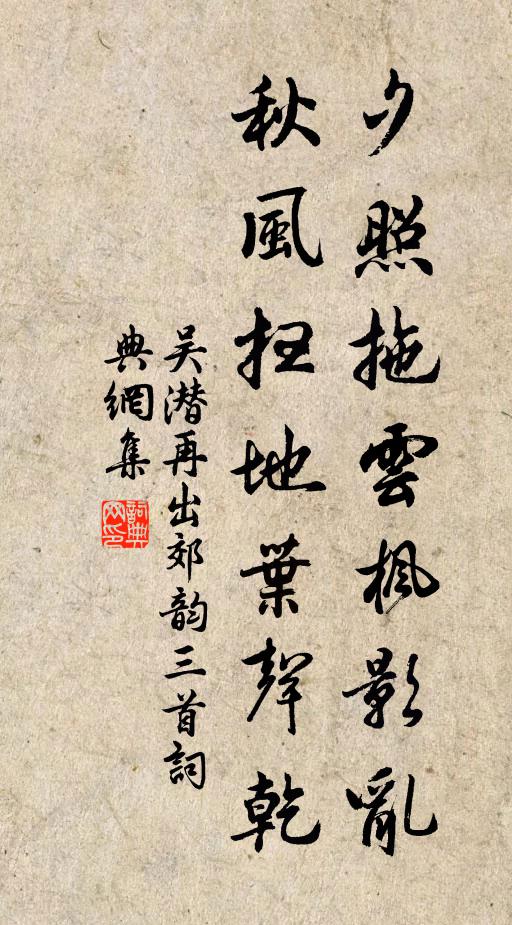 夕照拖雲枫影亂
秋風扫地葉聲乾
吴潜再出郊韵三首詞
典網集
詞典
网印